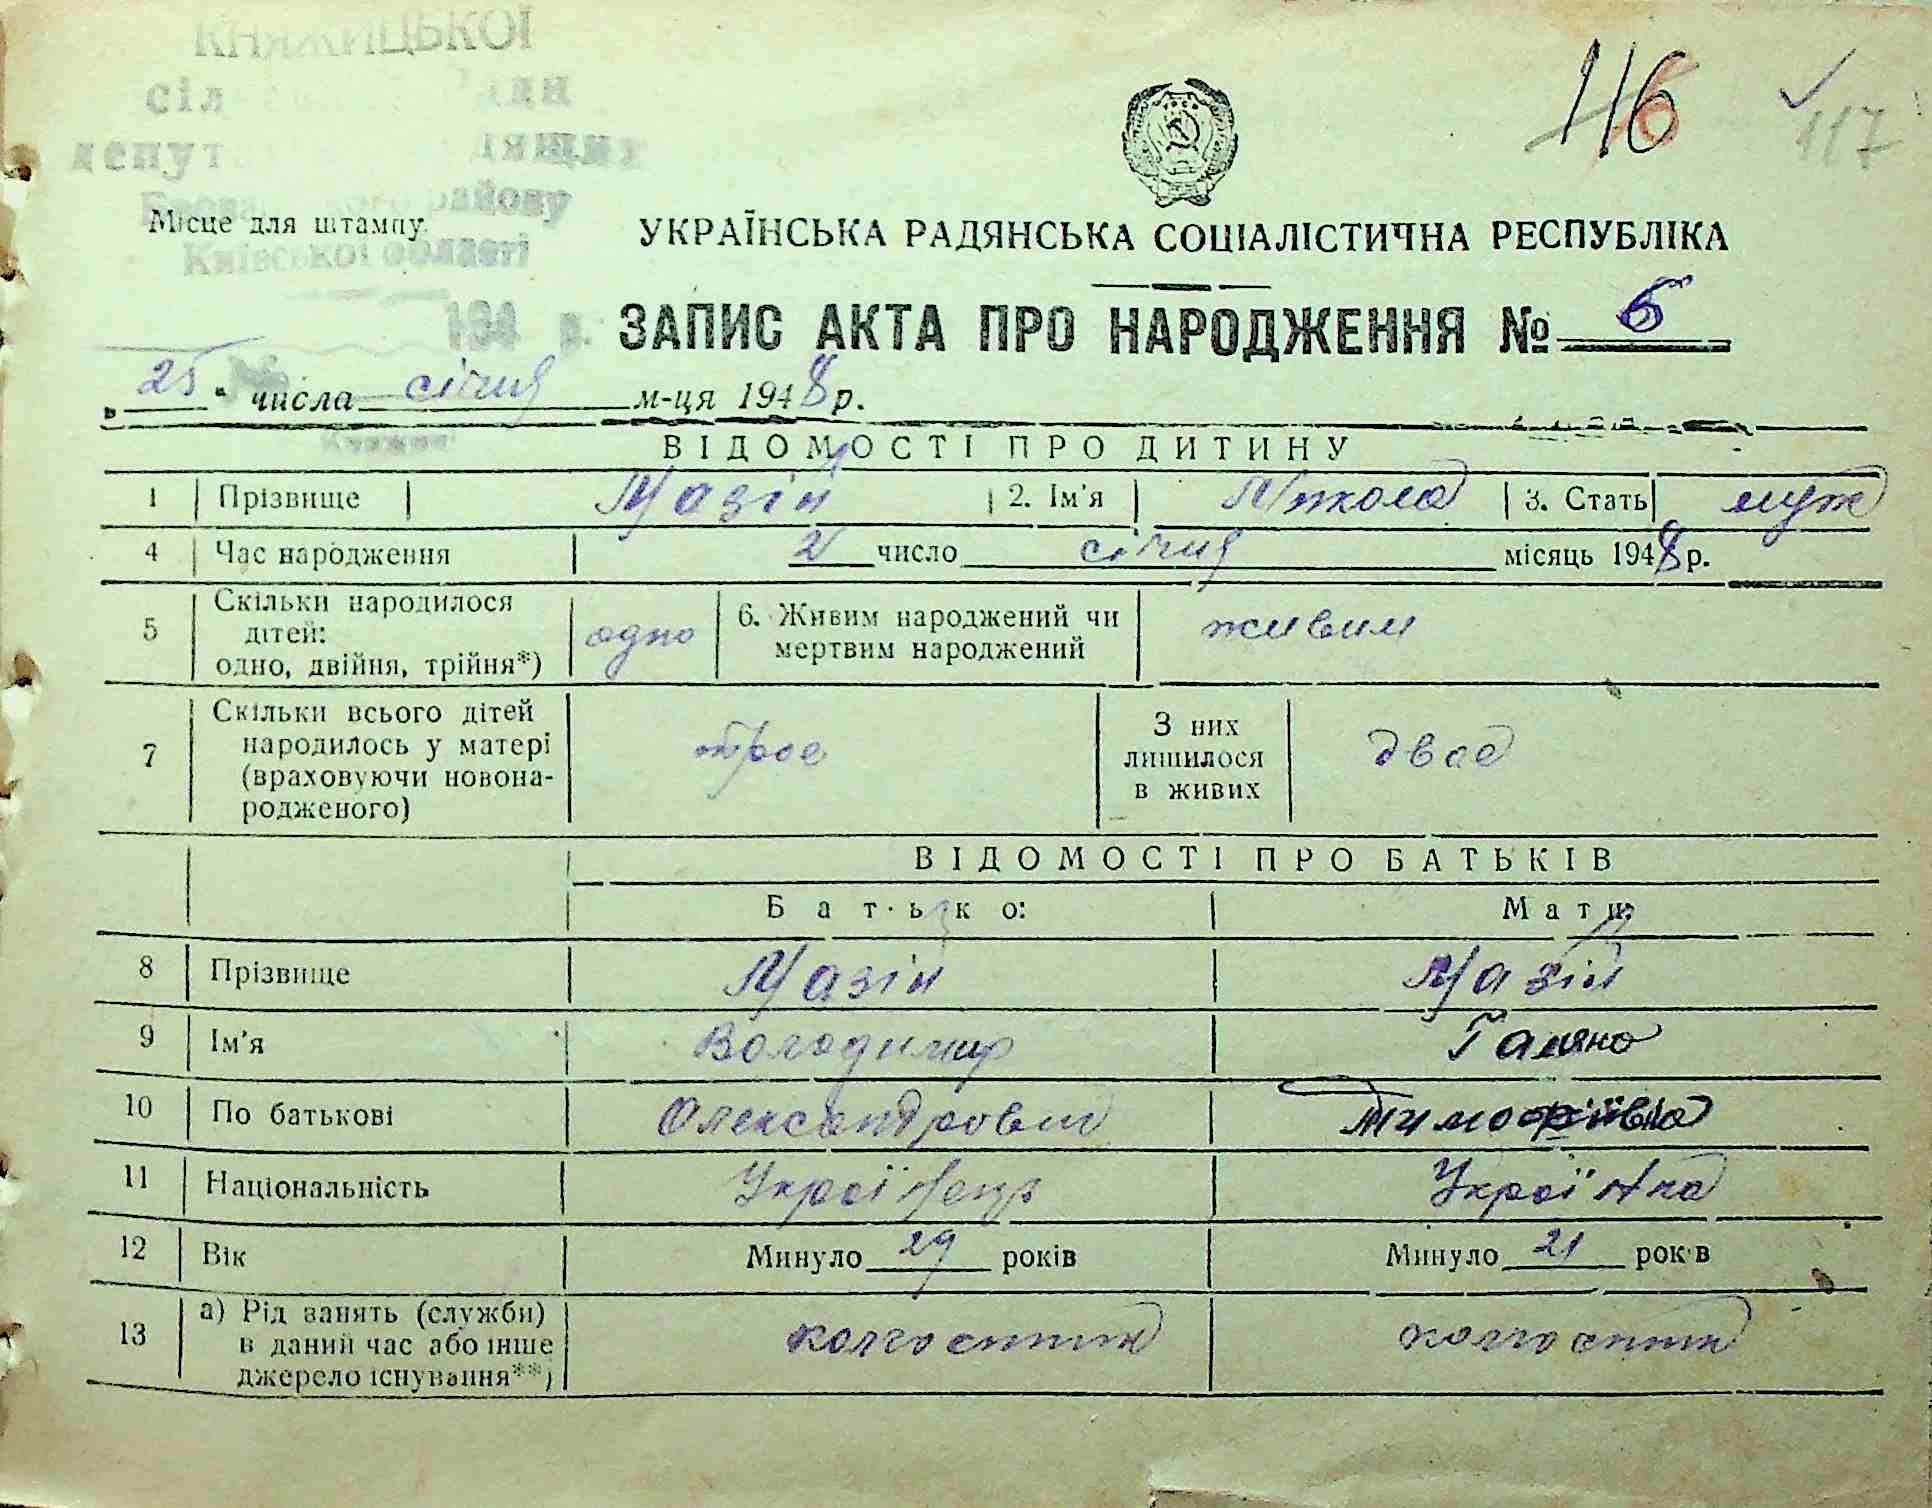 КНЯЖИЦЬКОЇ
116
117
Київської області
194 р.
Місце для штампу
УКРАЇНСЬКА РАДЯНСЬКА СОЦІАЛІСТИЧНА РЕСПУБЛІКА
ЗАПИС АКТА ПРО НАРОДЖЕННЯ № 6
„25“ числа січня м-ця 1948 р.
ВІДОМОСТІ ПРО ДИТИНУ
1 Прізвище Мазій 2. Ім'я Микола 3. Стать муж
4 Час народження 2 число січня місяць 1948 р.
5 Скільки народилося дітей: одно, двійня, трійня*) одно 6. Живим народжений чи мертвим народжений живим
7 Скільки всього дітей народилось у матері (враховуючи новонародженого) троє З них лишилося в живих двоє
ВІДОМОСТІ ПРО БАТЬКІВ
Батько: Мати:
8 Прізвище Мазій Мазій
9 Ім'я Володимир Галяна
10 По батькові Олександрович Тимофіївна
11 Національність Українець Українка
12 Вік Минуло 29 років Минуло 21 років
13 а) Рід занять (служби) в даний час або інше джерело існування**) колгоспник колгоспник